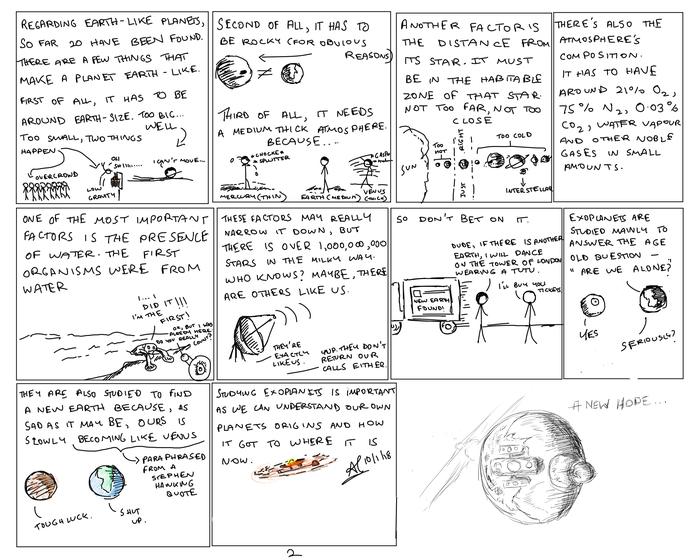 REGARDING EARTH-LIKE PLANETS,
SO FAR 20 HAVE BEEN FOUND.
THERE ARE A FEW THINGS THAT
MAKE A PLANET EARTH-LIKE.
FIRST OF ALL, IT HAS TO BE
AROUND EARTH-SIZE. TOO BIG...
WELL,
TOO SMALL, TWO THINGS
HAPPEN.
OVERCROWD
LOW
GRAVITY
I CAN'T MOVE...
SECOND OF ALL, IT HAS TO
BE ROCKY (FOR OBVIOUS
REASONS)
≠
THIRD OF ALL, IT NEEDS
A MEDIUM THICK ATMOSPHERE.
BECAUSE....
MERCURY (THIN)
EARTH (MEDIUM)
VENUS
(THICK)
ANOTHER FACTOR IS
THE DISTANCE FROM
ITS STAR. IT MUST
BE IN THE HABITABLE
ZONE OF THAT STAR.
NOT TOO FAR, NOT TOO
CLOSE
SUN
TOO
HOT
JUST RIGHT
TOO COLD
INTERSTELLAR
THERE'S ALSO THE
ATMOSPHERE'S
COMPOSITION.
IT HAS TO HAVE
AROUND 21% O₂,
75% N₂, 0.03%
CO₂, WATER VAPOUR
AND OTHER NOBLE
GASES IN SMALL
AMOUNTS.
ONE OF THE MOST IMPORTANT
FACTORS IS THE PRESENCE
OF WATER. THE FIRST
ORGANISMS WERE FROM
WATER
I... I
DID IT!!!
I'M THE
FIRST!
THESE FACTORS MAY REALLY
NARROW IT DOWN, BUT
THERE IS OVER 1,000,000,000
STARS IN THE MILKY WAY.
WHO KNOWS? MAYBE, THERE
ARE OTHERS LIKE US.
THEY'RE
EXACTLY
LIKE US.
YUP. THEY DON'T
RETURN OUR
CALLS EITHER.
SO DON'T BET ON IT.
DUDE, IF THERE IS ANOTHER
EARTH, I WILL DANCE
ON THE TOWER OF LONDON
WEARING A TUTU.
I'LL BUY YOU
TICKETS.
NEW EARTH
FOUND!
EXOPLANETS ARE
STUDIED MAINLY TO
ANSWER THE AGE
OLD QUESTION -
"ARE WE ALONE?"
YES
SERIOUSLY?
THEY ARE ALSO STUDIED TO FIND
A NEW EARTH BECAUSE, AS
SAD AS IT MAY BE, OURS IS
SLOWLY BECOMING LIKE VENUS
PARAPHRASED
FROM A
STEPHEN
HAWKING
QUOTE
TOUGH LUCK.
SHUT
UP.
STUDYING EXOPLANETS IS IMPORTANT
AS WE CAN UNDERSTAND OUR OWN
PLANETS ORIGINS AND HOW
IT GOT TO WHERE IT IS
NOW.
10/1/18
A NEW HOPE...
2